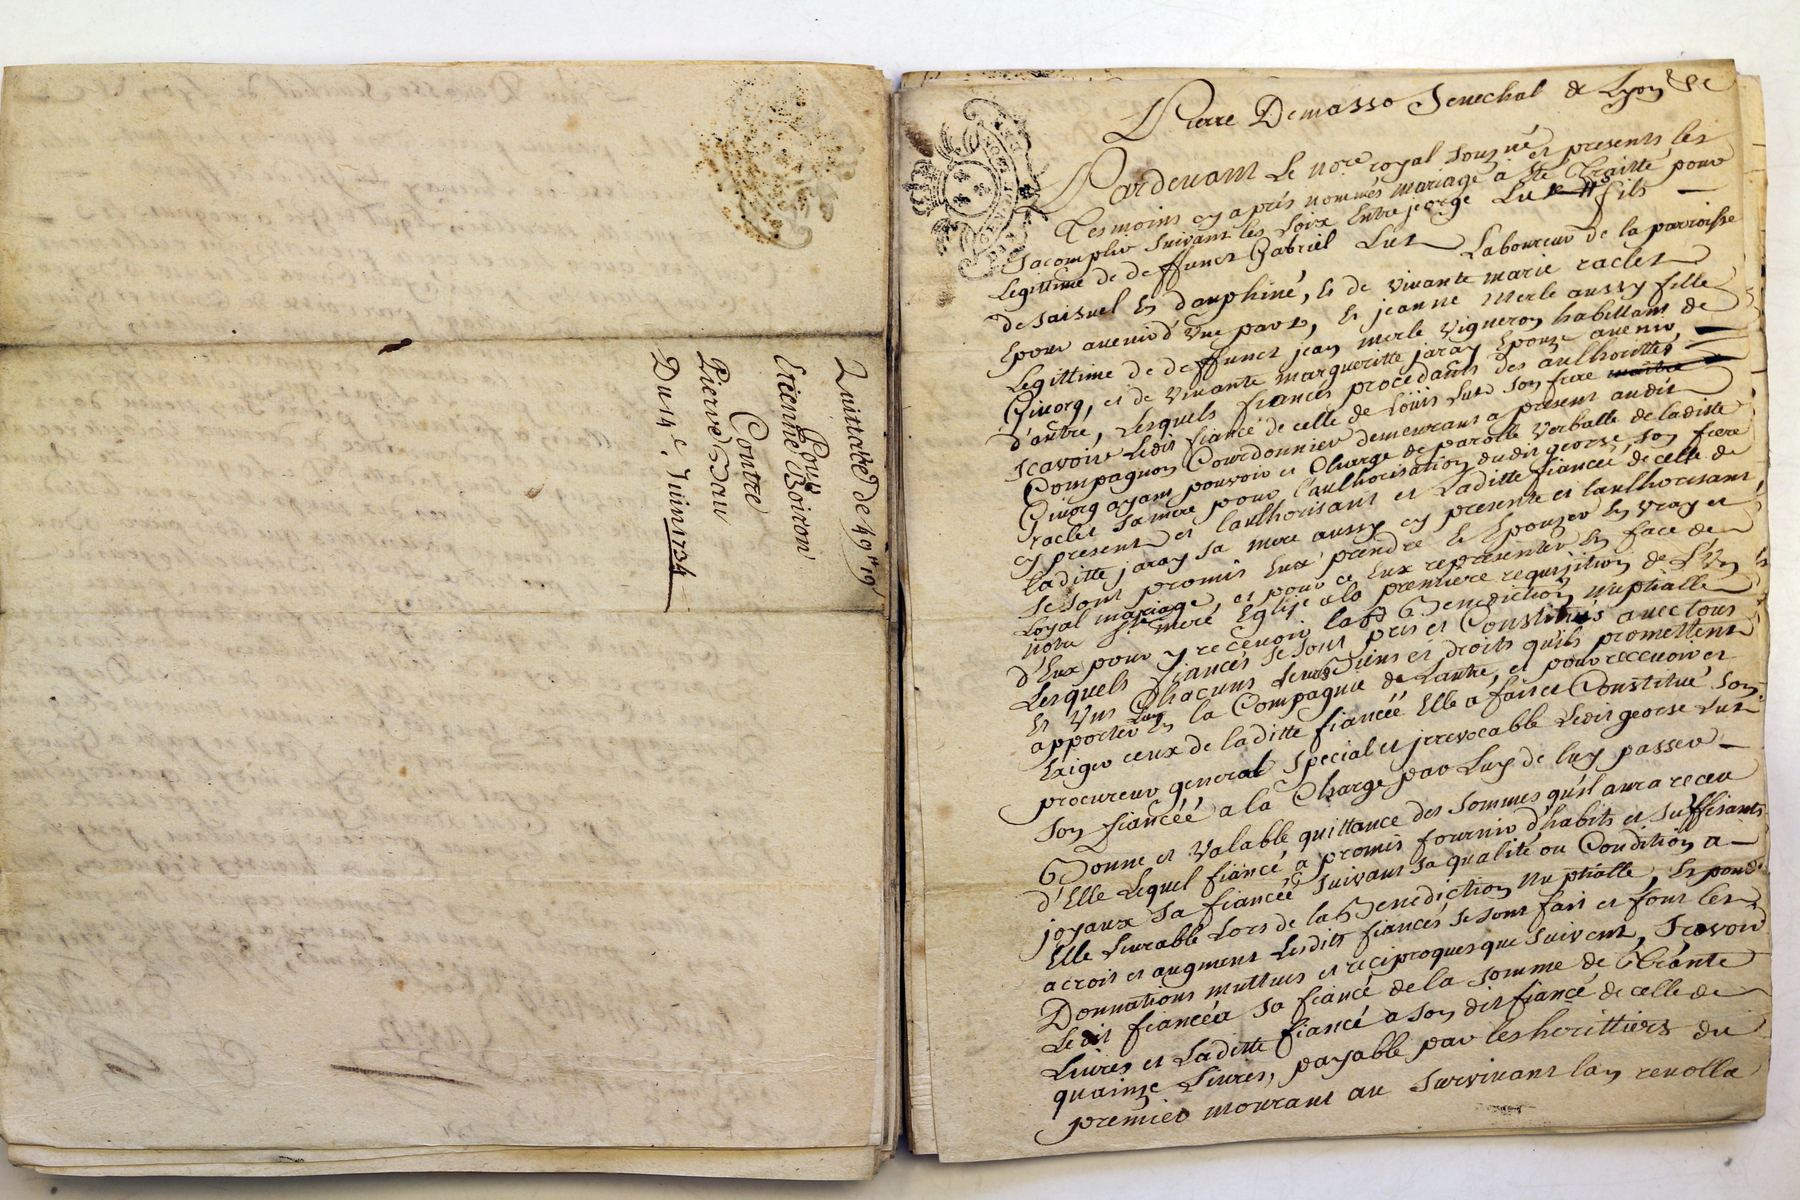 Quittance de 49ᵗᵗ 19ˢ
Pour
Etienne Boiron
Contre
Pierre Dau
Du 14ᵉ. Juin 1734
Pierre Demasso Senechal de Lyon &c
Pardevant Le no.re royal Souzne et presents les
Tesmoins cy apres nommés mariage a ete Traitté pour
Sacomplir Suivant les Loix Entre jeorge Lur fils
Legittime de deffunct Gabriel Lur Laboureur de la parroisse
de Saisuel En dauphiné, Et de vivante marie raclet
Epour avenir d'Une part, Et jeanne Merle aussy fille
Legittime de deffunct jean merle Vigneron habittant de
Givorg, et de Vivante margueritte jaray Epouze avenir,
d'autre, Lesquels fiancés procedants des authorittés
Scavoir Ledit fiancé de celle de Loüis Lur Son frere
Compagnon Courdonnier demeurant a present audit
Givorg ayant pouvoir et Charge de parolle Verballe de laditte
raclet Sa mere pour l'authorisation dudit george, Son frere
cy present et l'authorisant et Laditte fiancée de celle de
laditte jaray Sa mere aussy cy presente et l'authorisant,
Se sont promis Eux prendre et Epouzer En Vray et
Loyal mariage, et pour ce Eux representer En face de
notre Ste mere Eglise a la premiere requisition de L'Un
d'Eux pour y recevoir la Benediction nuptialle
Lesquels fiancés Se sont pris et Constitués avec tous
Et Uns Chacuns Leurs Biens et droits qu'ils promettent
apporter En la Compagnie de Lautre, et pour recevoir et
Exiger ceux de laditte fiancée Elle a fait et Constitué Son
procureur general Special et jrrevocable Ledit george Lur
Son fiancéé a la Charge par Luy de luy passer
Bonne et Valable quittance des Sommes qu'il aura receu
d'Elle Lequel fiancé a promis fournir d'habits et Suffisants
joyaux Sa fiancée Suivant Sa qualité ou Condition a
Elle Livrable Lors de la Benediction Nuptialle, Et pour
acroit et augment Lesdits fiancés Se sont fait et font les
Donnations muttues et reciproques que Suivent, Scavoir
Ledit fiancé a Sa fiancé de la Somme de Trante
Livres et Laditte fiancé a Son dit fiancé de celle de
quainze Livres, payable par les herittiers du
premier mourant au Survivant lan revollu